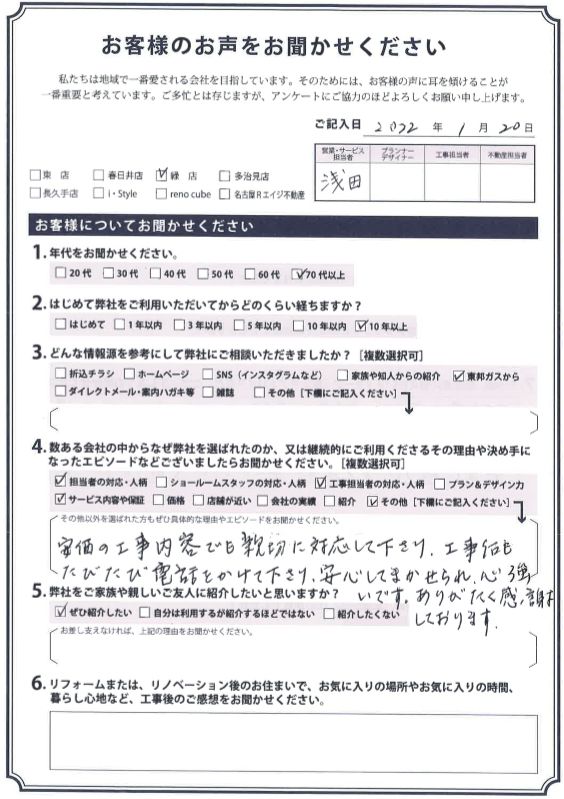 お客様のお声をお聞かせください
私たちは地域で一番愛される会社を目指しています。そのためには、お客様の声に耳を傾けることが
一番重要と考えています。ご多忙とは存じますが、アンケートにご協力のほどよろしくお願い申し上げます。
ご記入日 2022 年 1 月 20 日
営業・サービス担当者 プランナーデザイナー 工事担当者 不動産担当者
浅田
□東 店 □春日井店 ☑緑 店 □多治見店
□長久手店 □i・Style □reno cube □名古屋Rエイジ不動産
お客様についてお聞かせください
1. 年代をお聞かせください。
□20代 □30代 □40代 □50代 □60代 ☑70代以上
2. はじめて弊社をご利用いただいてからどのくらい経ちますか？
□はじめて □1年以内 □3年以内 □5年以内 □10年以内 ☑10年以上
3. どんな情報源を参考にして弊社にご相談いただきましたか？［複数選択可］
□折込チラシ □ホームページ □SNS（インスタグラムなど） □家族や知人からの紹介 ☑東邦ガスから
□ダイレクトメール・案内ハガキ等 □雑誌 □その他［下欄にご記入ください］
4. 数ある会社の中からなぜ弊社を選ばれたのか、又は継続的にご利用くださるその理由や決め手に
なったエピソードなどございましたらお聞かせください。［複数選択可］
☑担当者の対応・人柄 □ショールームスタッフの対応・人柄 ☑工事担当者の対応・人柄 □プラン＆デザイン力
☑サービス内容や保証 □価格 □店舗が近い □会社の実績 □紹介 ☑その他［下欄にご記入ください］
その他以外を選ばれた方もぜひ具体的な理由やエピソードをお聞かせください。
安価の工事内容でも親切に対応して下さり、工事后も
たびたび電話をかけて下さり、安心してまかせられ、心強
いです。ありがたく感謝
しております。
5. 弊社をご家族や親しいご友人に紹介したいと思いますか？
☑ぜひ紹介したい □自分は利用するが紹介するほどではない □紹介したくない
お差し支えなければ、上記の理由をお聞かせください。
6. リフォームまたは、リノベーション後のお住まいで、お気に入りの場所やお気に入りの時間、
暮らし心地など、工事後のご感想をお聞かせください。